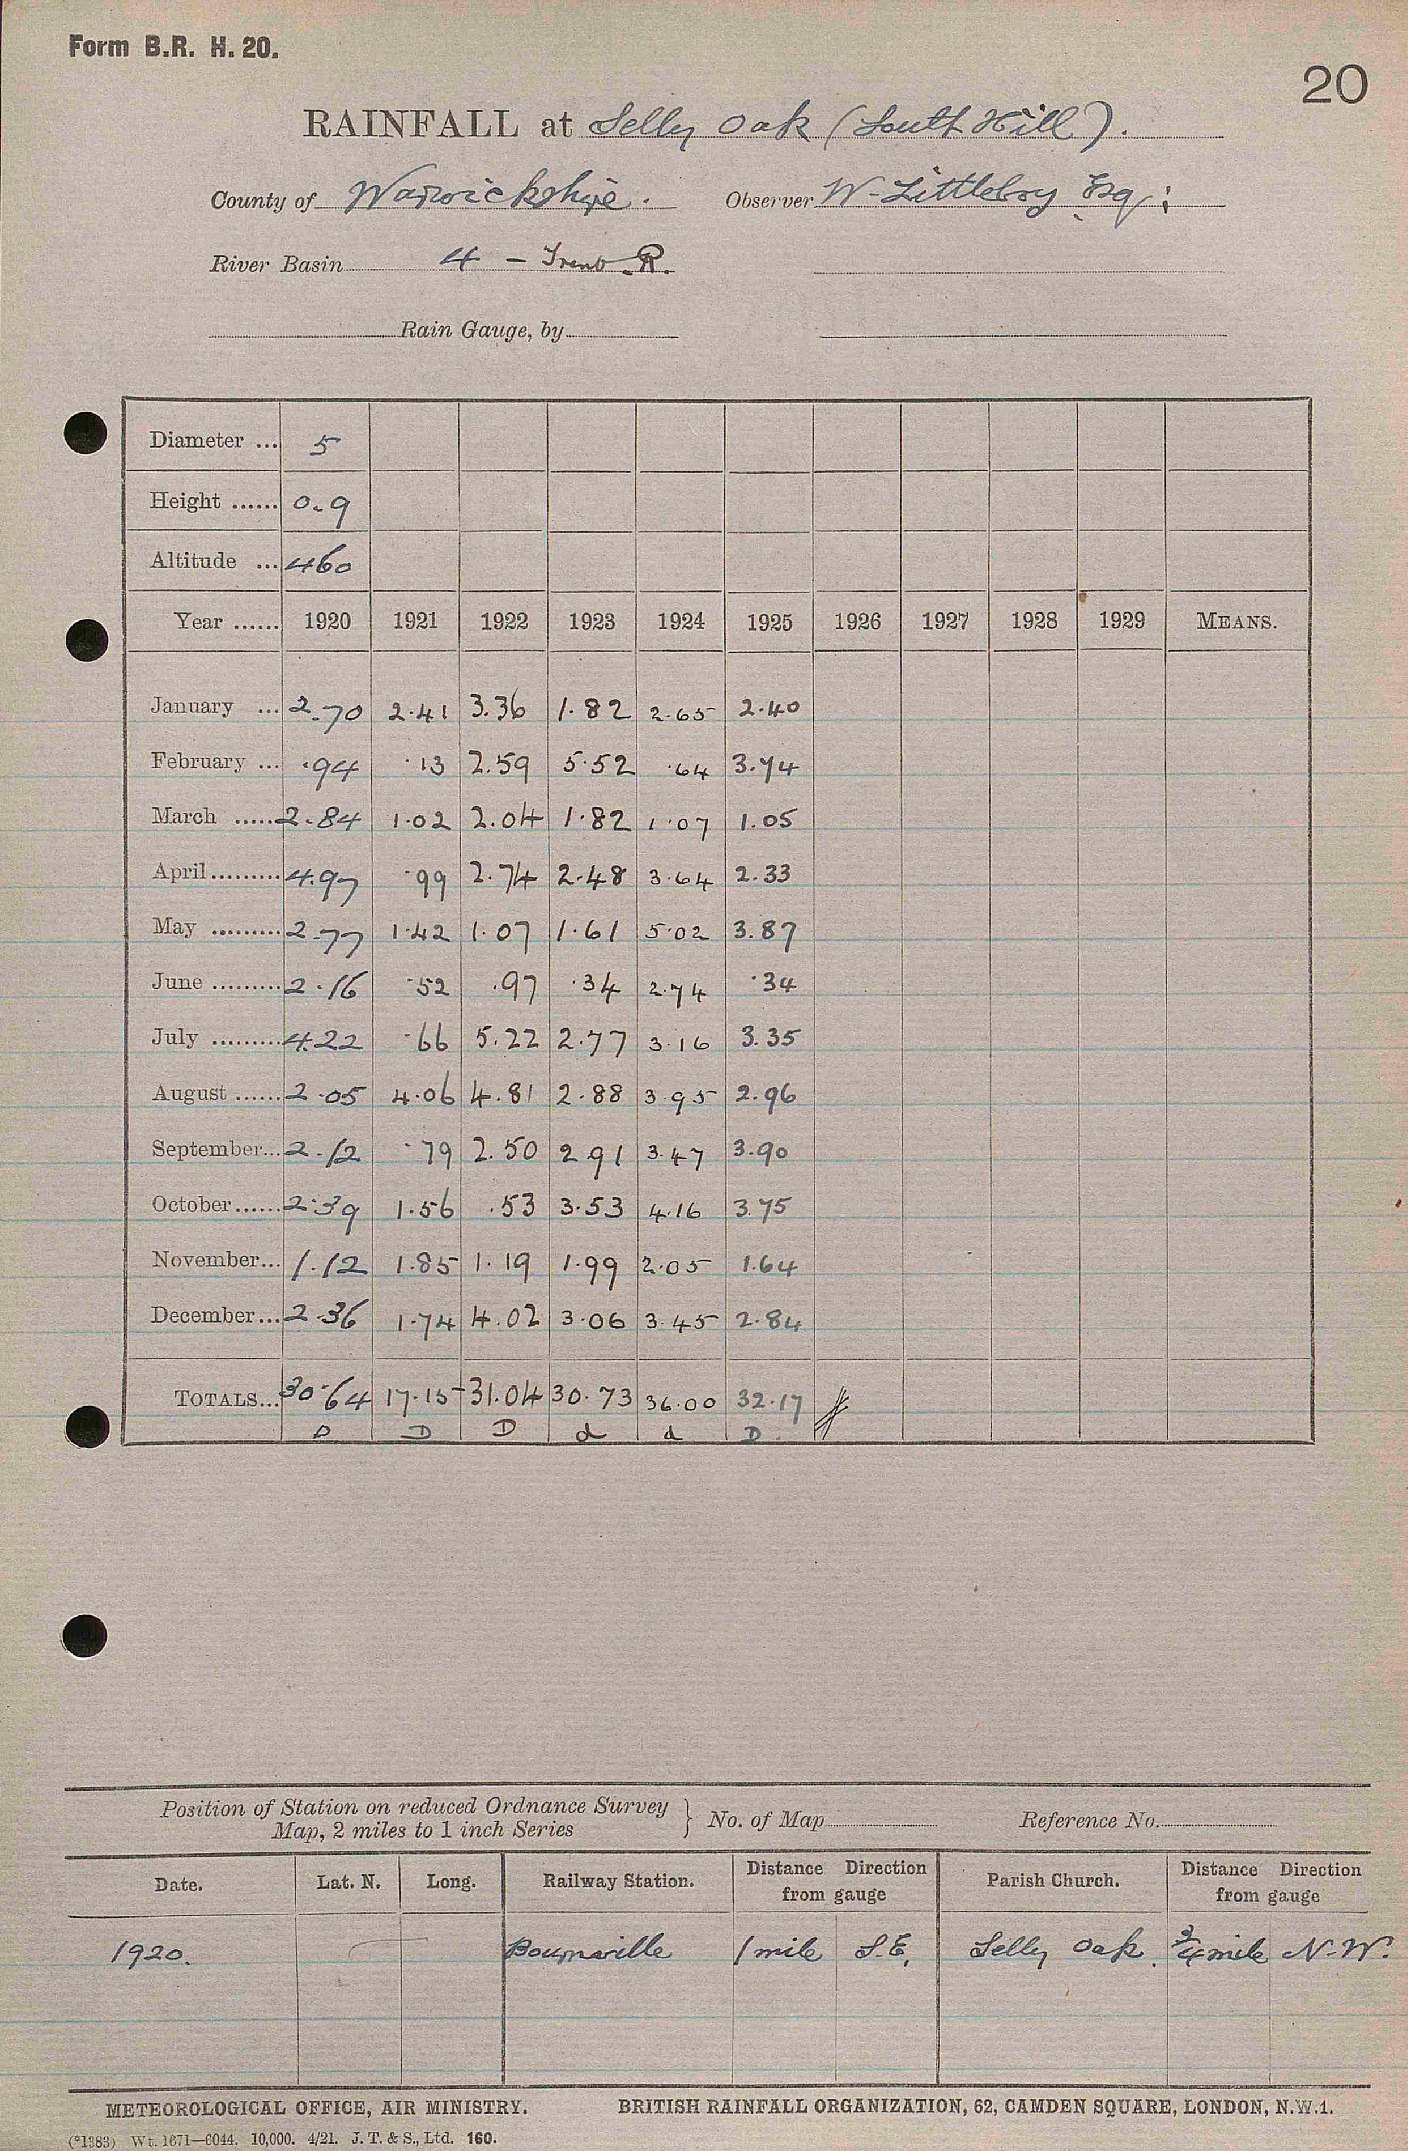 Form B.R. H. 20.
20
RAINFALL at Selly Oak (South Hill).
County of Warwickshire. Observer W. Littleboy Esq;
River Basin 4 - Trent R.
Rain Gauge, by
Diameter ... 5
Height ...... 0.9
Altitude ... 460
Year ...... 1920 1921 1922 1923 1924 1925 1926 1927 1928 1929 MEANS.
January ... 2.70 2.41 3.36 1.82 2.65 2.40
February ... .94 .13 2.59 5.52 .64 3.74
March ..... 2.84 1.02 2.04 1.82 1.07 1.05
April ......... 4.97 .99 2.74 2.48 3.64 2.33
May ......... 2.77 1.42 1.07 1.61 5.02 3.87
June ......... 2.16 .52 .97 .34 2.74 .34
July ......... 4.22 .66 5.22 2.77 3.16 3.35
August ...... 2.05 4.06 4.81 2.88 3.95 2.96
September... 2.12 .79 2.50 2.91 3.47 3.90
October...... 2.39 1.56 .53 3.53 4.16 3.75
November... 1.12 1.85 1.19 1.99 2.05 1.64
December... 2.36 1.74 4.02 3.06 3.45 2.84
TOTALS... 30.64 17.15 31.04 30.73 36.00 32.17
D D D d d D.
Position of Station on reduced Ordnance Survey
Map, 2 miles to 1 inch Series } No. of Map Reference No.
Date. Lat. N. Long. Railway Station. Distance Direction from gauge Parish Church. Distance Direction from gauge
1920. Bournville 1 mile S.E. Selly Oak. 3/4 mile N.W.
METEOROLOGICAL OFFICE, AIR MINISTRY. BRITISH RAINFALL ORGANIZATION, 62, CAMDEN SQUARE, LONDON, N.W.1.
(*1383) Wt. 1671—6044. 10,000. 4/21. J. T. & S., Ltd. 160.